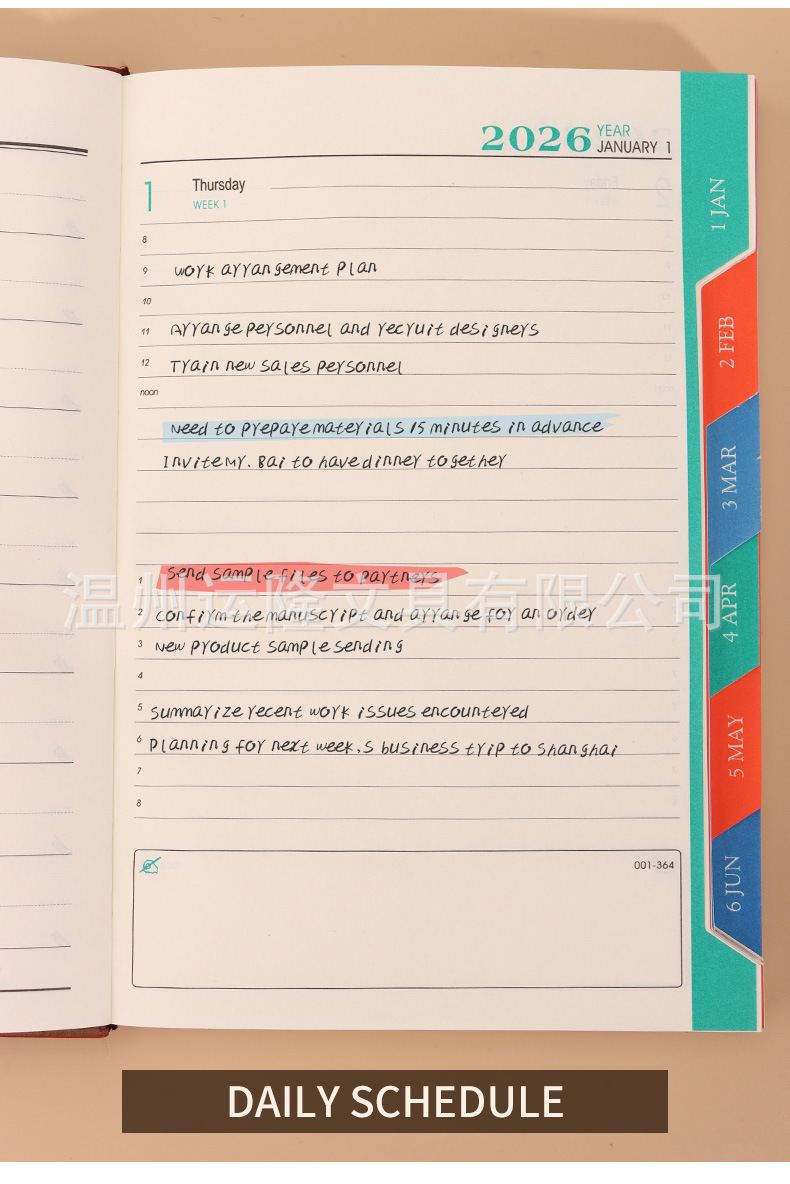 2026 YEAR
JANUARY 1
1 Thursday
WEEK 1
8
9 Work arrangement plan
10
11 Arrange personnel and recruit designers
12 Train new sales personnel
noon
Need to prepare materials 15 minutes in advance
Invite Mr. Bai to have dinner together
1 Send sample files to partners
温州运隆文具有限公司
2 confirm the manuscript and arrange for an order
3 New product sample sending
4
5 Summarize recent work issues encountered
6 Planning for next week,s business trip to Shanghai
7
8
001-364
1 JAN
2 FEB
3 MAR
4 APR
5 MAY
6 JUN
DAILY SCHEDULE